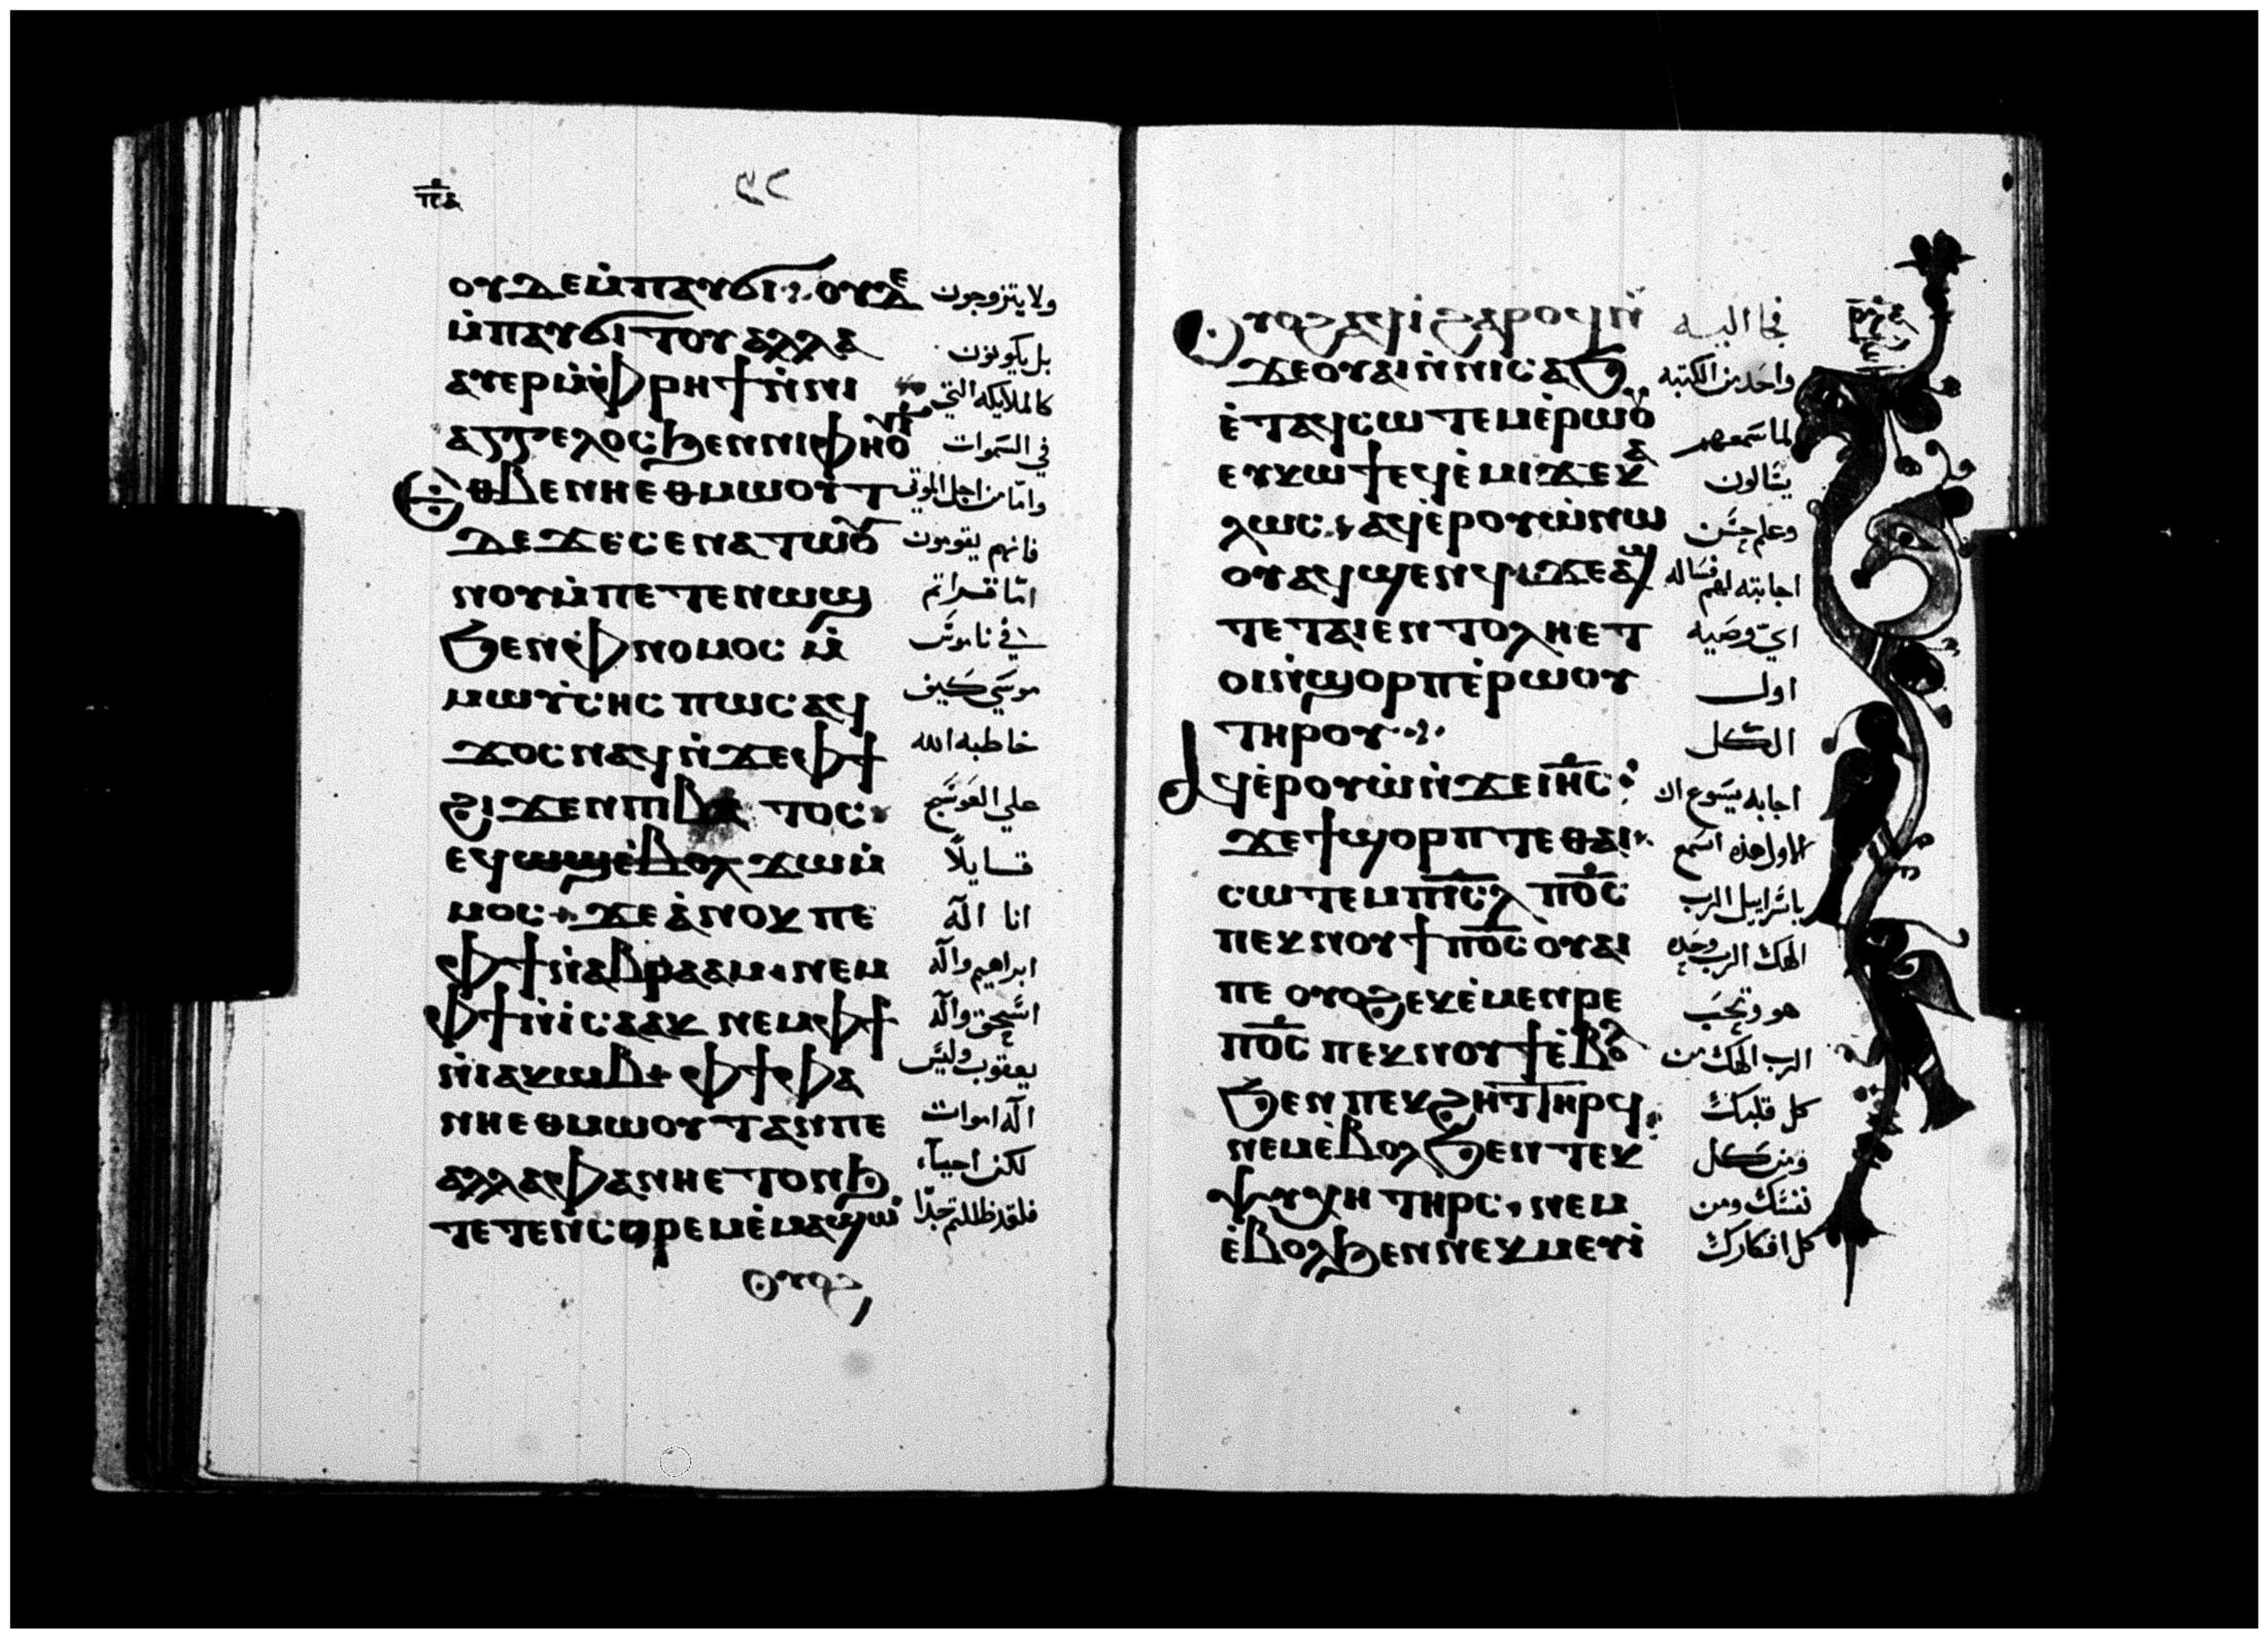 ⲡⲉⲇ
ⲟⲩⲇⲉ ⲙ̀ⲡⲁⲩϭⲓ ⲟⲩⲇⲉ
ولا يتزوجون
ⲙ̀ⲡⲁⲩϭⲓⲧⲟⲩ ⲁⲗⲗⲁ
بل يكونون
ⲁⲩⲉⲣ ⲙ̀ⲫⲣⲏϯ ⲛ̀ⲛⲓ
كالملايكه التي
ⲁⲅⲅⲉⲗⲟⲥ ϧⲉⲛ ⲛⲓⲫⲏⲟⲩⲓ
في السموات
ⲉⲑⲃⲉ ⲛⲏⲉⲑⲙⲱⲟⲩⲧ
واما من اجل الموتى
ⲇⲉ ϫⲉ ⲥⲉⲛⲁⲧⲱⲟⲩ
فانهم يقومون
ⲛⲟⲩ ⲙ̀ⲡⲉⲧⲉⲛⲱϣ
اما قراتم
ϧⲉⲛ ⲫⲛⲟⲙⲟⲥ ⲙ̀
في ناموس
ⲙⲱⲩⲥⲏⲥ ⲡⲱⲥ ⲁϥ
موسي كيف
ϫⲟⲥ ⲛⲁϥ ⲛ̀ϫⲉ ⲫϯ
خاطبه الله
ϩⲓϫⲉⲛ ⲡⲓⲃⲁⲧⲟⲥ
علي العوسج
ⲉϥⲱϣ ⲉ̀ⲃⲟⲗ ϫⲱⲙ̀
قايلًا
ⲙⲟⲥ ϫⲉ ⲁ̀ⲛⲟⲕ ⲡⲉ
انا اله
ⲫϯ ⲛ̀ⲁⲃⲣⲁⲁⲙ ⲛⲉⲙ
ابراهيم واله
ⲫϯ ⲛ̀ⲓⲥⲁⲁⲕ ⲛⲉⲙ ⲫϯ
اسحق واله
ⲛ̀ⲓⲁⲕⲱⲃ ⲫϯ ⲫⲁ
يعقوب وليس
ⲛⲏⲉⲑⲙⲱⲟⲩⲧ ⲁⲛ ⲡⲉ
اله اموات
ⲁⲗⲗⲁ ⲫⲁ ⲛⲏⲉⲧⲟⲛϧ
لكن احيآء
ⲧⲉⲧⲉⲛⲥⲱⲣⲉⲙ ⲉ̀ⲙⲁϣⲱ
فلقد ظللتم جدًا
ⲟⲩⲟϩ
ⲟⲩⲟϩ ⲁϥⲓ̀ ϩⲁⲣⲟϥ ⲛ̀
فجا اليه
ϫⲉ ⲟⲩⲁⲓ ⲛ̀ⲛⲓⲥⲁϧ
واحد من الكتبه
ⲉ̀ⲧⲁϥⲥⲱⲧⲉⲙ ⲉ̀ⲣⲱⲟⲩ
لما سمعهم
ⲉⲩⲕⲱϯ ⲉϥⲉ̀ⲙⲓ ϫⲉ ⲕⲁ
يسالون
ⲗⲱⲥ ⲁϥⲉ̀ⲣⲟⲩⲱ̀ ⲛⲱ
وعلم حسن
ⲟⲩ ⲁϥϣⲉⲛϥ ϫⲉ ⲁϣ
اجابته لهم فساله
ⲧⲉ ⲧⲁⲓⲉⲛⲧⲟⲗⲏ ⲉⲧ
اي وصيه
ⲟⲓ ⲛ̀ϣⲟⲣⲡ ⲉ̀ⲣⲱⲟⲩ
اول
ⲧⲏⲣⲟⲩ
الكل
ⲁϥⲉ̀ⲣⲟⲩⲱ̀ ⲛ̀ϫⲉ ⲓⲏ̅ⲥ̅
اجابه يسوع ان
ϫⲉ ϯϣⲟⲣⲡⲓ ⲧⲉ ⲑⲁⲓ
الاول هذه اسمع
ⲥⲱⲧⲉⲙ ⲡⲓⲥ̅ⲗ̅ ⲡⲟ̅ⲥ̅
ياسراييل الرب
ⲡⲉⲕⲛⲟⲩϯ ⲡⲟ̅ⲥ̅ ⲟⲩⲁⲓ
الهك الرب وحده
ⲡⲉ ⲟⲩⲟϩ ⲉⲕⲉ̀ⲙⲉⲛⲣⲉ
هو وتحب
ⲡⲟ̅ⲥ̅ ⲡⲉⲕⲛⲟⲩϯ ⲉ̀ⲃⲟⲗ
الرب الهك من
ϧⲉⲛ ⲡⲉⲕϩⲏⲧ ⲧⲏⲣϥ
كل قلبك
ⲛⲉⲙ ⲉ̀ⲃⲟⲗ ϧⲉⲛ ⲧⲉⲕ
ومن كل
ⲯⲩⲭⲏ ⲧⲏⲣⲥ ⲛⲉⲙ
نفسك ومن
ⲉ̀ⲃⲟⲗ ϧⲉⲛ ⲛⲉⲕⲙⲉⲩⲓ̀
كل افكارك